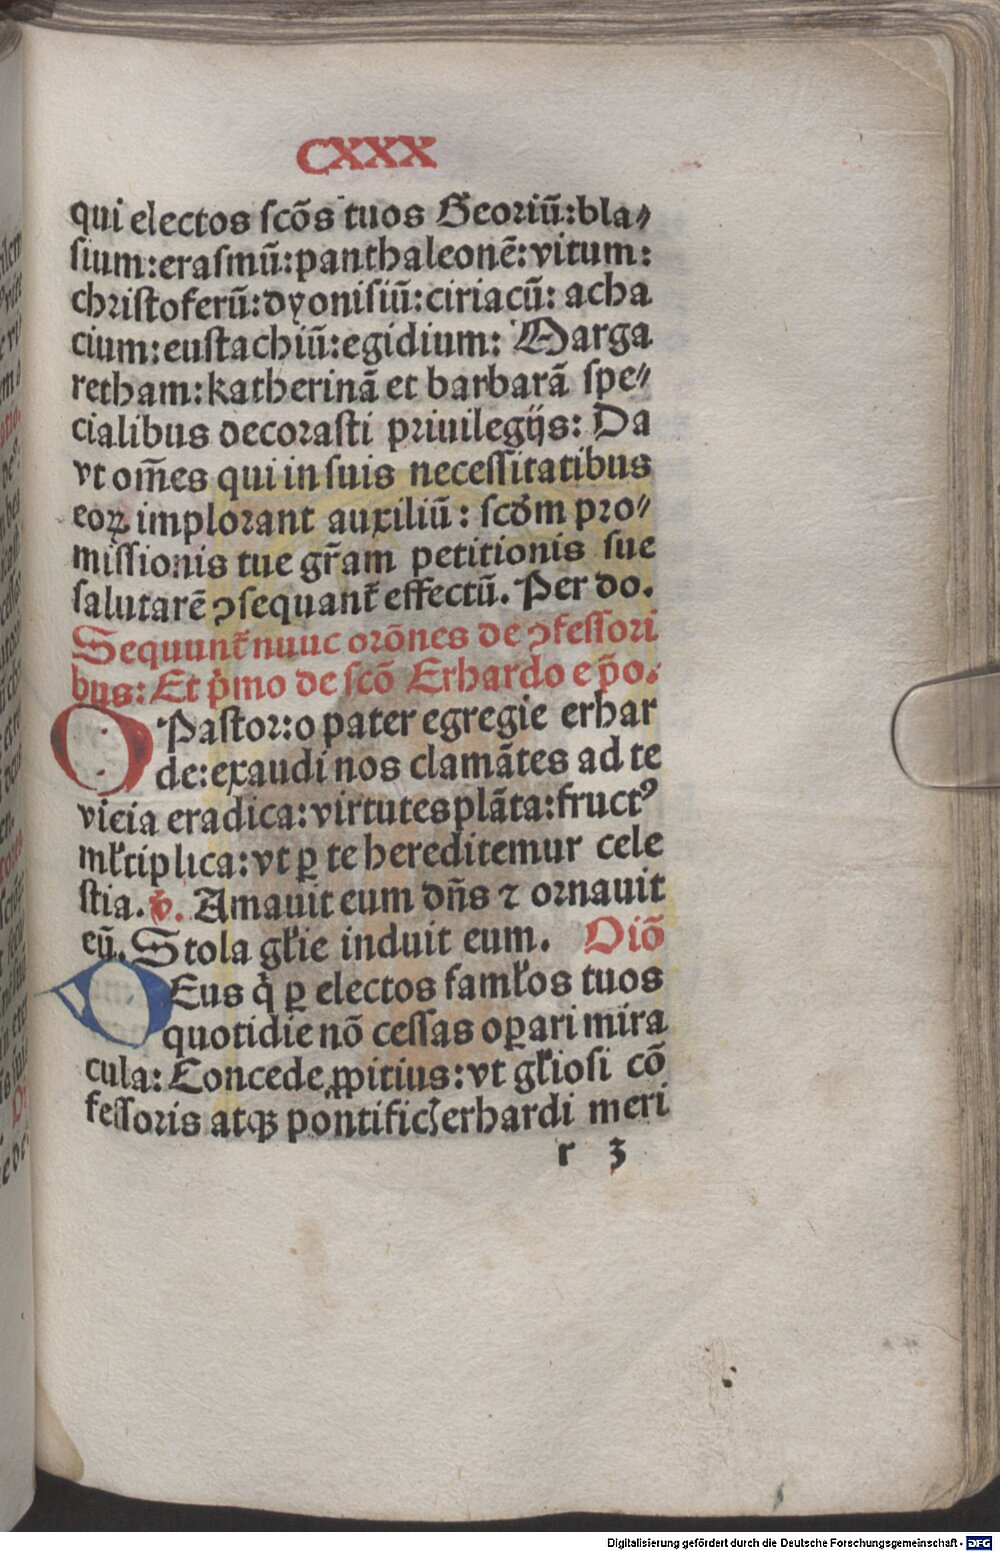 CXXX
qui electos scõs tuos Georiũ:bla⸗
sium:erasmũ:panthaleonẽ:vitum:
christoferũ:dyonisiũ:ciriacũ: acha
cium:eustachiũ:egidium: Marga
retham:katherinã et barbarã spe⸗
cialibus decorasti priuilegijs: Da
vt om̃es qui in suis necessitatibus
eoꝝ implorant auxiliũ: scd̓m pro⸗
missionis tue gr̃am petitionis sue
salutarẽ ꝯsequant᷑ effectũ. Per do.
Sequunt᷑ nuuc orõnes de ꝯfessori
bus: Et p̓mo de scõ Erhardo ep̃o.
O Pastor:o pater egregie erhar
de:exaudi nos clamãtes ad te
vicia eradica:virtutes plãta:fructꝰ
ml̓tiplica:vt ꝑ te hereditemur cele
stia. v̓. Amauit eum dñs ⁊ ornauit
eũ. Stola gl̓ie induit eum. Oiõ
DEus q̓ ꝑ electos faml̓os tuos
quotidie nõ cessas oꝑari mira
cula: Concede ꝓpitius:vt gl̓iosi cõ
fessoris atqꝫ pontificꝭ erhardi meri
r 3
Digitalisierung gefördert durch die Deutsche Forschungsgemeinschaft - DFG